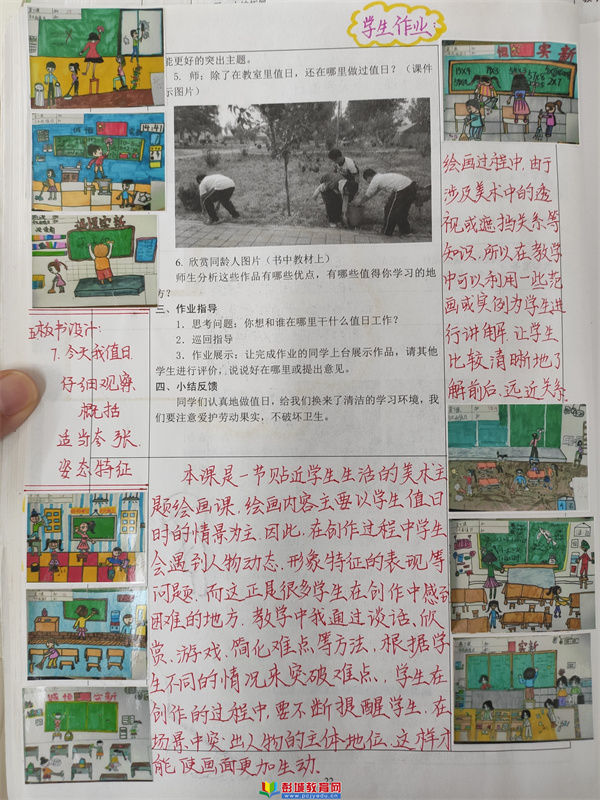 学生作业:
能更好的突出主题。
5. 师:除了在教室里值日,还在哪里做过值日?(课件
示图片)
6. 欣赏同龄人图片(书中教材上)
师生分析这些作品有哪些优点,有哪些值得你学习的地
方?
三、作业指导
1. 思考问题:你想和谁在哪里干什么值日工作?
2. 巡回指导
3. 作业展示:让完成作业的同学上台展示作品,请其他
学生进行评价,说说好在哪里或提出意见。
四、小结反馈
同学们认真地做值日,给我们换来了清洁的学习环境,我
们要注意爱护劳动果实,不破坏卫生。
绘画过程中,由于
涉及美术中的透
视或遮挡关系等
知识,所以在教学
中可以利用一些范
画或实例为学生进
行讲解.让学生
比较清晰地了
解前后、远近关系.
五板书设计:
7.今天我值日
仔细观察
概括
适当夸张
姿态特征
本课是一节贴近学生生活的美术主
题绘画课.绘画内容主要以学生值日
时的情景为主.因此,在创作过程中学生
会遇到人物动态.形象特征的表现等
问题.而这正是很多学生在创作中感到
困难的地方.教学中我通过谈话、欣
赏、游戏.简化难点等方法,根据学
生不同的情况来突破难点,.学生在
创作的过程中,要不断提醒学生,在
场景中突出人物的主体地位.这样才
能使画面更加生动.
诚恒实新
实新
彭城教育网
www.pcjyedu.cn